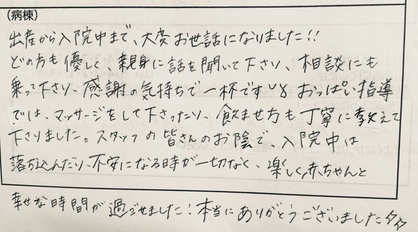 (病棟)
出産から入院中まで、大変お世話になりました!!
どの方も優しく、親身に話を聞いて下さり、相談にも
乗って下さり、感謝の気持ちで一杯です おっぱい指導
では、マッサージをして下さったり、飲ませ方も丁寧に教えて
下さりました。スタッフの皆さんのお陰で、入院中は
落ち込んだり、不安になる時が一切なく、楽しく赤ちゃんと
幸せな時間が過ごせました!本当にありがとうございました